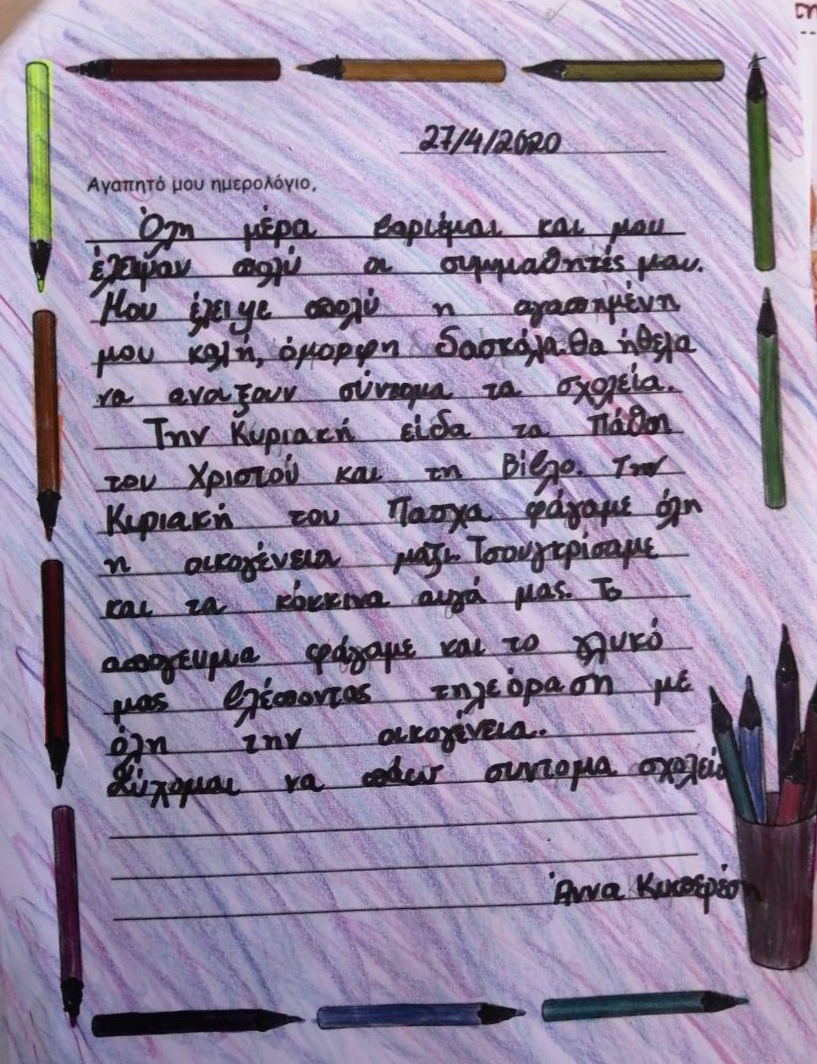 27/4/2020
Αγαπητό μου ημερολόγιο,
Όλη μέρα βαριέμαι και μου
έλειψαν πολύ οι συμμαθητές μου.
Μου έλειψε πολύ η αγαπημένη
μου καλή, όμορφη δασκάλα. Θα ήθελα
να ανοιξουν σύντομα τα σχολεία.
Την Κυριακή είδα τα Πάθη
του Χριστού και τη Βίβλο. Την
Κυριακή του Πασχα φάγαμε όλη
η οικογένεια μαζι. Τσουγκρίσαμε
και τα κόκκινα αυγά μας. Το
απογευμα φάγαμε και το γλυκό
μας βλέποντας τηλεόραση με
όλη την οικογένεια..
Εύχομαι να πάω συντομα σχολείο
Άννα